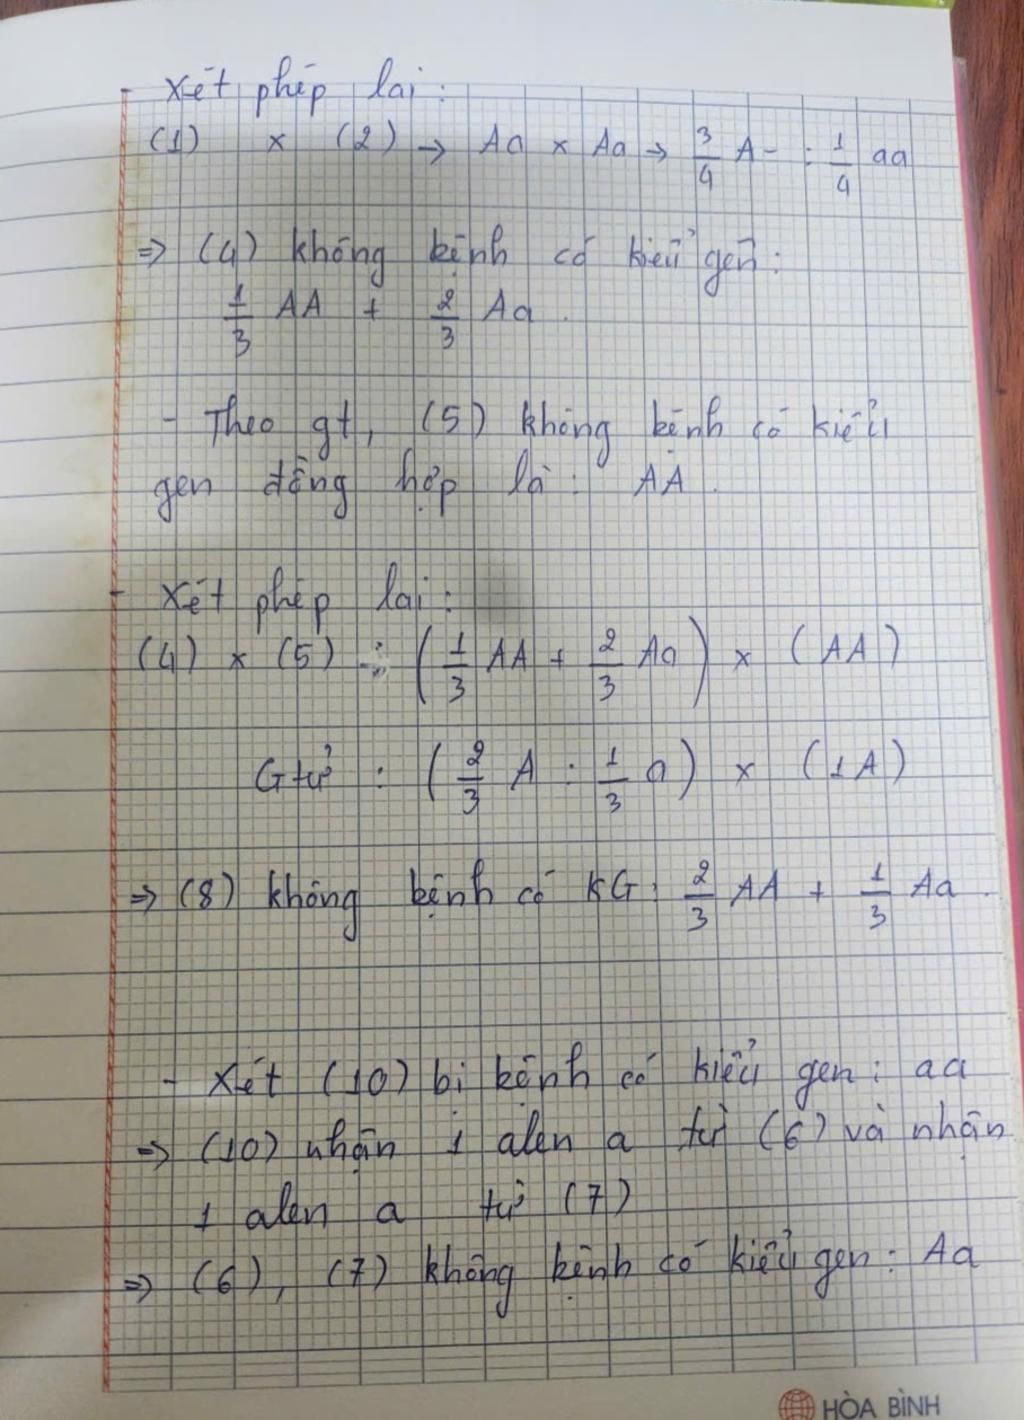 - Xét phép lai:
(1) x (2) → Aa x Aa → 3/4 A- : 1/4 aa
⇒ (4) không bệnh có kiểu gen:
1/3 AA + 2/3 Aa.
- Theo gt, (5) không bệnh có kiểu
gen đồng hợp là: AA.
- Xét phép lai:
(4) x (5) : (1/3 AA + 2/3 Aa) x (AA)
Gtử : (2/3 A : 1/3 a) x (1A)
⇒ (8) không bệnh có KG: 2/3 AA + 1/3 Aa.
- Xét (10) bị bệnh có kiểu gen: aa
⇒ (10) nhận 1 alen a từ (6) và nhận
1 alen a từ (7)
⇒ (6), (7) không bệnh có kiểu gen: Aa
HÒA BÌNH